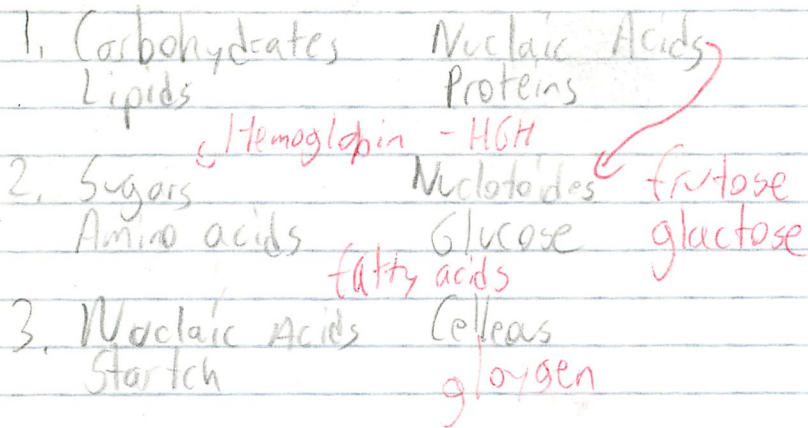 1. Carbohydrates Nuclaic Acids
Lipids Proteins
Hemoglobin - HGH
2. Sugars Nuclotoides frutose
Amino acids Glucose glactose
fatty acids
3. Nuclaic Acids Celleas
Startch gloygen